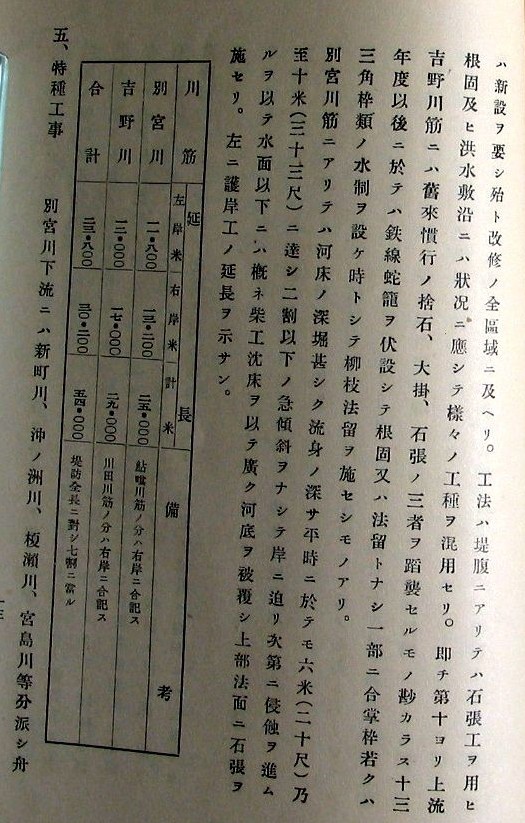 ハ新設ヲ要シ殆ト改修ノ全區域ニ及ヘリ。工法ハ堤腹ニアリテハ石張工ヲ用ヒ
根固及ヒ洪水敷沿ニハ狀況ニ應シテ樣々ノ工種ヲ混用セリ。卽チ第十ヨリ上流
吉野川筋ニハ舊來慣行ノ捨石、大掛、石張ノ三者ヲ蹈襲セルモノ尠カラス十三
年度以後ニ於テハ鉄線蛇籠ヲ伏設シテ根固又ハ法留トナシ一部ニ合掌枠若クハ
三角枠類ノ水制ヲ設ケ時トシテ柳枝法留ヲ施セシモノアリ。
別宮川筋ニアリテハ河床ノ深堀甚シク流身ノ深サ平時ニ於テモ六米(二十尺)乃
至十米(三十三尺)ニ達シ二割以下ノ急傾斜ヲナシテ岸ニ迫リ次第ニ侵蝕ヲ進ム
ルヲ以テ水面以下ニハ概ネ柴工沈床ヲ以テ廣ク河底ヲ被覆シ上部法面ニ石張ヲ
施セリ。左ニ護岸工ノ延長ヲ示サン。
川筋 延長 備考
左岸米 右岸米 計米
別宮川 一一・八〇〇 一三・二〇〇 二五・〇〇〇 鮎喰川筋ノ分ハ右岸ニ合記ス
吉野川 一二・〇〇〇 一七・〇〇〇 二九・〇〇〇 川田川筋ノ分ハ右岸ニ合記ス
合計 二三・八〇〇 三〇・二〇〇 五四・〇〇〇 堤防全長ニ對シ七割ニ當ル
五、特種工事 別宮川下流ニハ新町川、沖ノ洲川、榎瀬川、宮島川等分派シ舟